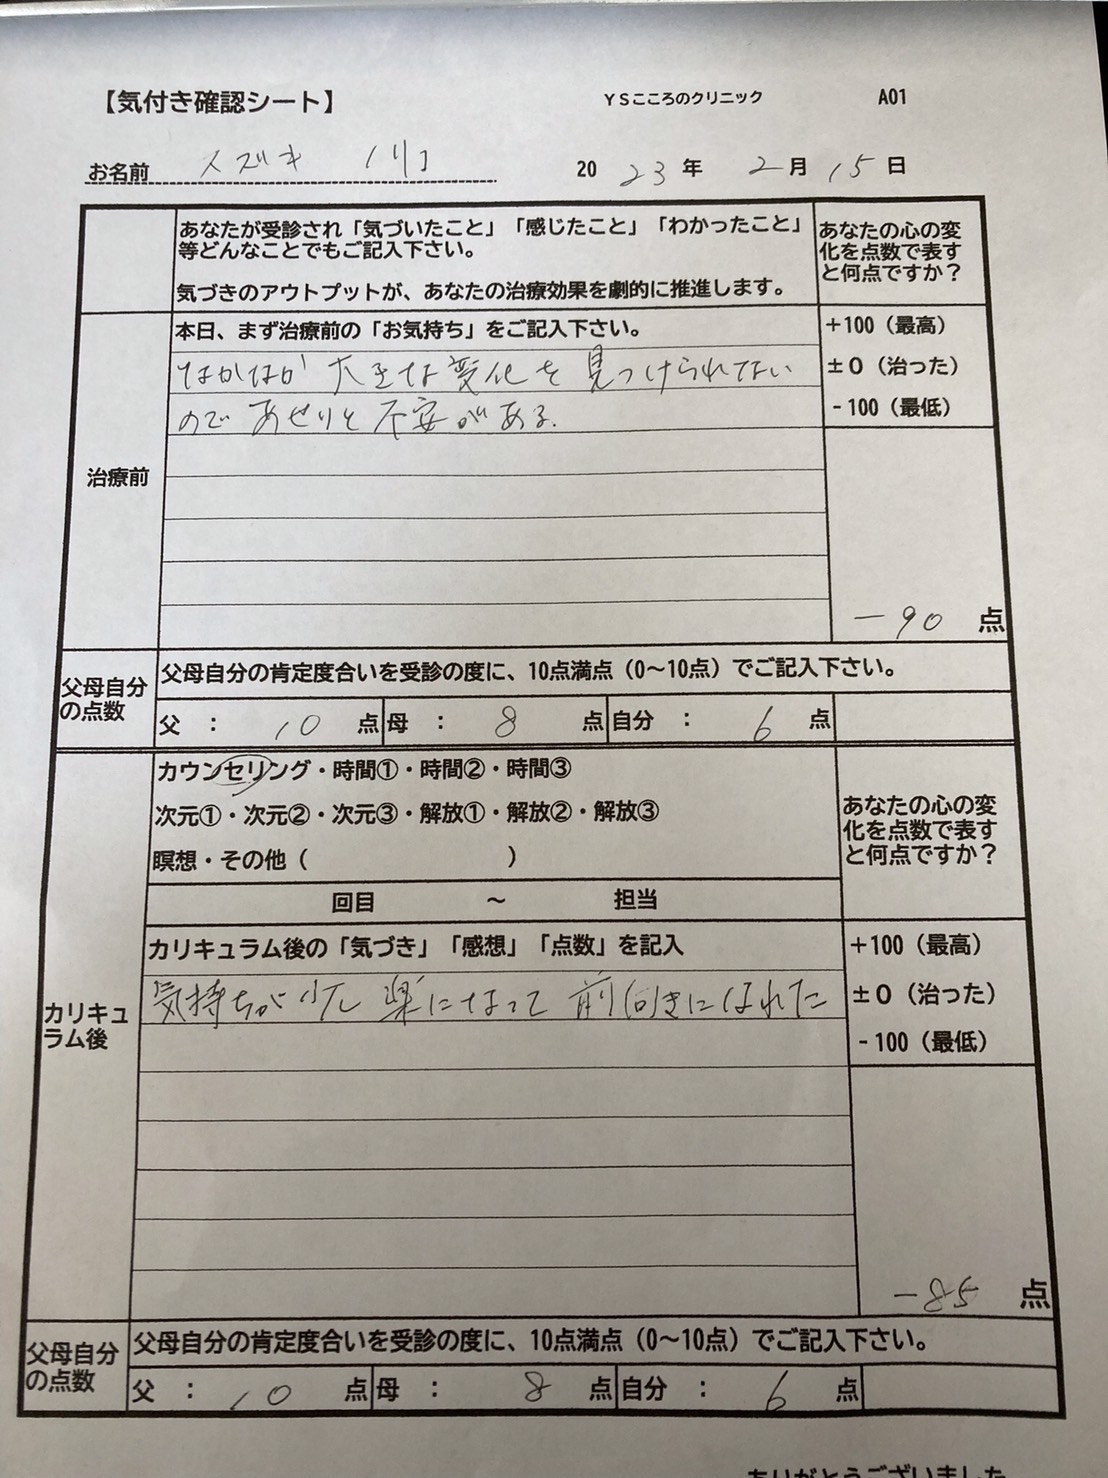 【気付き確認シート】 YSこころのクリニック A01
お名前 スズキ ノリコ 2023年 2月 15日
あなたが受診され「気づいたこと」「感じたこと」「わかったこと」
等どんなことでもご記入下さい。
気づきのアウトプットが、あなたの治療効果を劇的に推進します。
あなたの心の変
化を点数で表す
と何点ですか？
治療前
本日、まず治療前の「お気持ち」をご記入下さい。
なかなか 大きな変化を見つけられてない
ので あせりと不安がある.
+100（最高）
±0（治った）
-100（最低）
-90 点
父母自分
の点数
父母自分の肯定度合いを受診の度に、10点満点（0〜10点）でご記入下さい。
父 ： 10 点 母 ： 8 点 自分 ： 6 点
カウンセリング・時間①・時間②・時間③
次元①・次元②・次元③・解放①・解放②・解放③
瞑想・その他（ ）
回目 〜 担当
あなたの心の変
化を点数で表す
と何点ですか？
カリキュ
ラム後
カリキュラム後の「気づき」「感想」「点数」を記入
気持ちが少し 楽になって 前向きになれた
+100（最高）
±0（治った）
-100（最低）
-85 点
父母自分
の点数
父母自分の肯定度合いを受診の度に、10点満点（0〜10点）でご記入下さい。
父 ： 10 点 母 ： 8 点 自分 ： 6 点
ありがとうございました